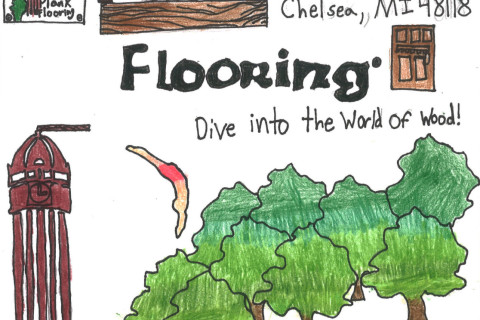 Plank
Flooring
Chelsea, MI 48118
Flooring
Dive into the World of Wood!